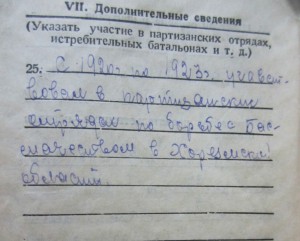 VII. Дополнительные сведения
(Указать участие в партизанских отрядах,
истребительных батальонах и т. д.)
25. С 1920г. по 1923г. участ-
вовал в партизанских
отрядах по борьбе с бас-
мачеством в Хорезмской
области.